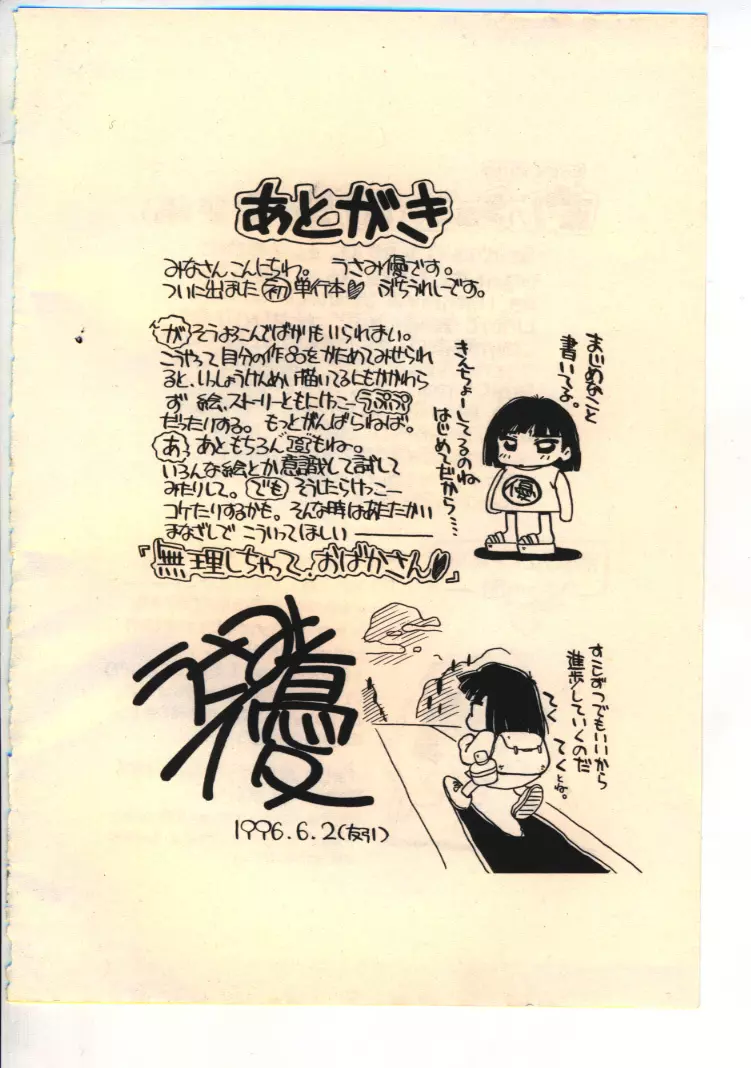 あとがき
みなさんこんにちわ。 うさみ優です。
ついに出ました 初 単行本♡ ぷちうれしーです。
が そうよろこんでばかりもいられまい。
こうやって自分の作品をかためてみせられ
ると、いっしょうけんめい描いてるにもかかわら
ず 絵、ストーリーともにけっこー うぷぷ
だったりする。 もっとがんばらねば。
あっ あともちろん 頭 もね。
いろんな絵とか意識して試して
みたりして。 でも そうしたらけっこー
コケたりするかも。そんな時はあたたかい
まなざしで こういってほしい ―――
『無理しちゃって、おばかさん♡』
まじめなこと
書いてるよ。
きんちょーしてるのね
はじめてだから……
優
うさみ優
1996.6.2(友引)
すこしずつでもいいから
進歩していくのだ
てく
てくよね。